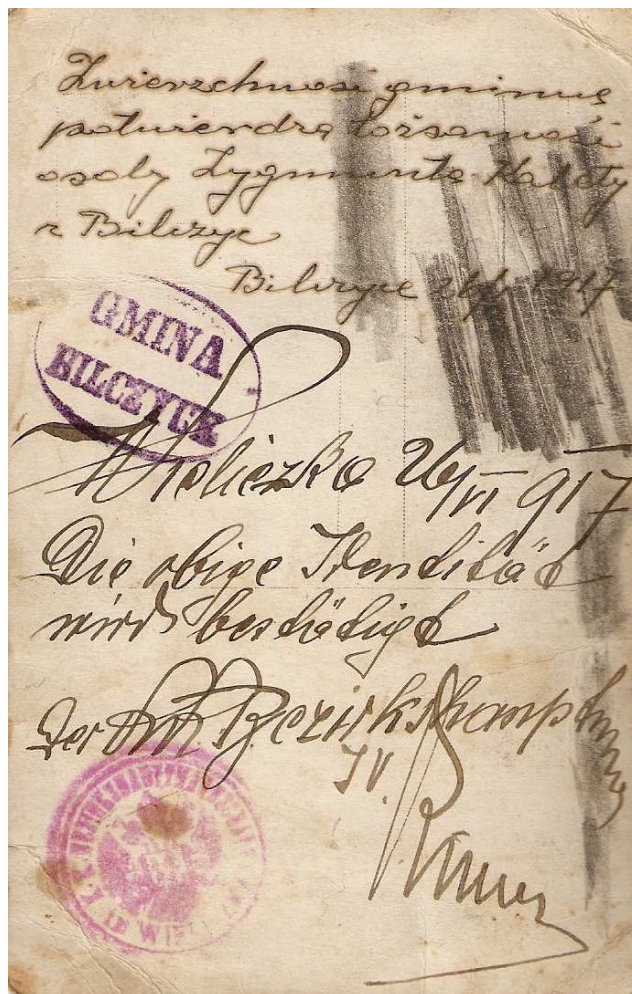 Zwierzchność gminna
potwierdza tożsamość
osoby Zygmunta
z Bilczyc
Bilczyce 1917
GMINA
BILCZYCE
Wieliczka 26/VI 917
Die obige Identität
wird bestätigt
Der k.k. Bezirkshauptmann
IV.